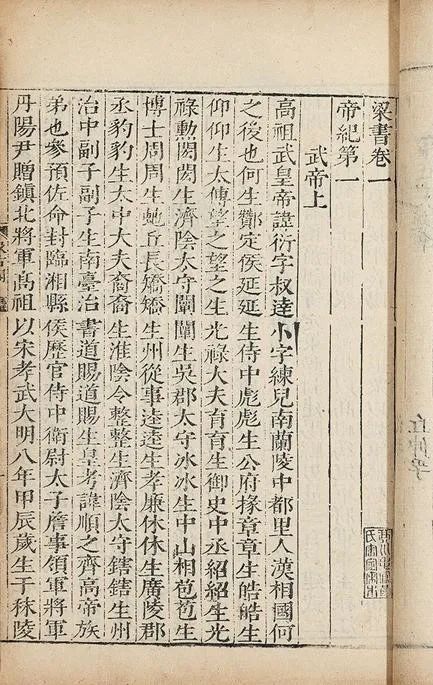 梁書卷一
帝紀第一
武帝上
高祖武皇帝諱衍字叔達小字練兒南蘭陵中都里人漢相國何
之後也何生酇定侯延延生侍中彪彪生公府掾章章生皓皓生
仰仰生太傅望之望之生光祿大夫育育生御史中丞紹紹生光
祿勳閎閎生濟陰太守闡闡生吳郡太守冰冰生中山相苞苞生
博士周周生虵丘長矯矯生州從事逵逵生孝廉休休生廣陵郡
丞豹豹生太中大夫裔裔生淮陰令整整生濟陰太守鎋鎋生州
治中副子副子生南臺治書道賜道賜生皇考諱順之齊高帝族
弟也參預佐命封臨湘縣侯歷官侍中衛尉太子詹事領軍將軍
丹陽尹贈鎮北將軍髙祖以宋孝武大明八年甲辰歲生于秣陵